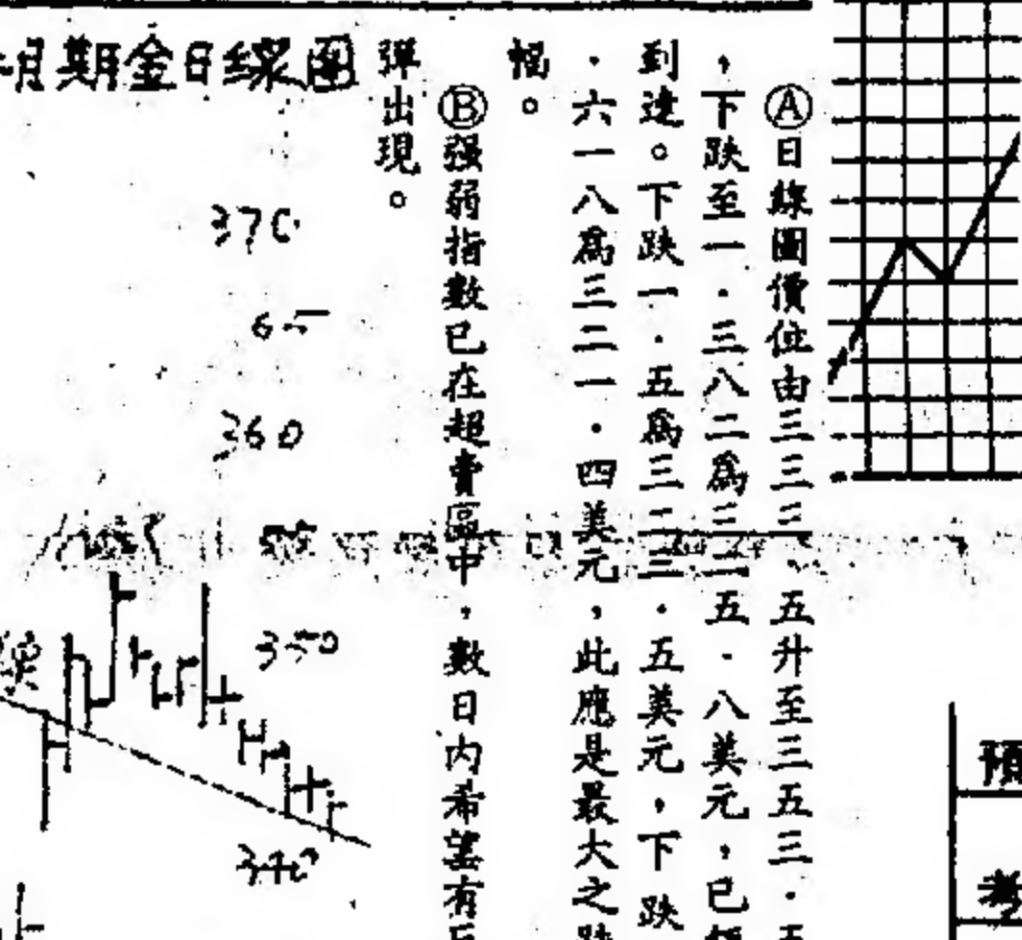 Ⓐ日線圖價位由三三三．五升至三五三．五
，下跌至一．三八二為三二五．八美元，已
到達。下跌一．五為三二三．五美元，下跌
．六一八為三二一．四美元，此應是最大之跌
幅。
Ⓑ强弱指數已在超賣區中，數日內希望有反
彈出現。
月期金日線圖
370
65
360
350
340
預
考